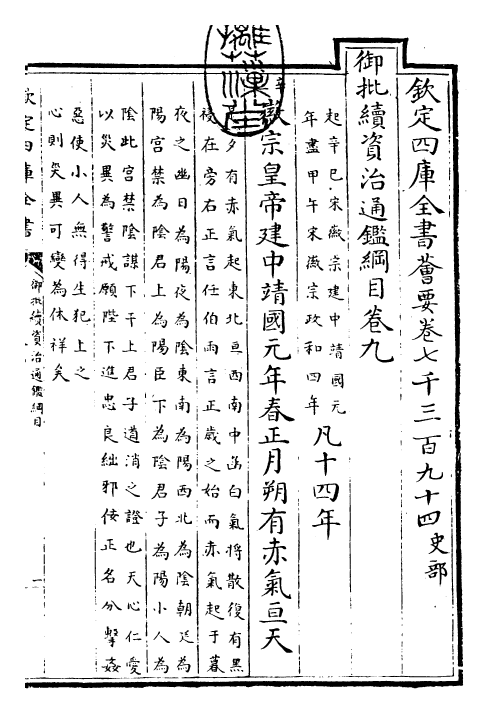 欽定四庫全書薈要卷七千三百九十四史部
御批續資治通鑑綱目卷九
起辛巳宋徽宗建中靖國元
年盡甲午宋徽宗政和四年
凡十四年
辛
徽宗皇帝建中靖國元年春正月朔有赤氣亘天
夕有赤氣起東北亘西南中函白氣將散復有黑
祲在旁右正言任伯雨言正歲之始而赤氣起于暮
夜之幽日為陽夜為陰東南為陽西北為陰朝廷為
陽宫禁為陰君上為陽臣下為陰君子為陽小人為
陰此宫禁陰謀下干上君子道消之證也天心仁愛
以災異為警戒願陛下進忠良絀邪佞正名分擊姦
惡使小人無得生犯上之
心則災異可變為休祥矣
欽定四庫全書
御批續資治通鑑綱目
一